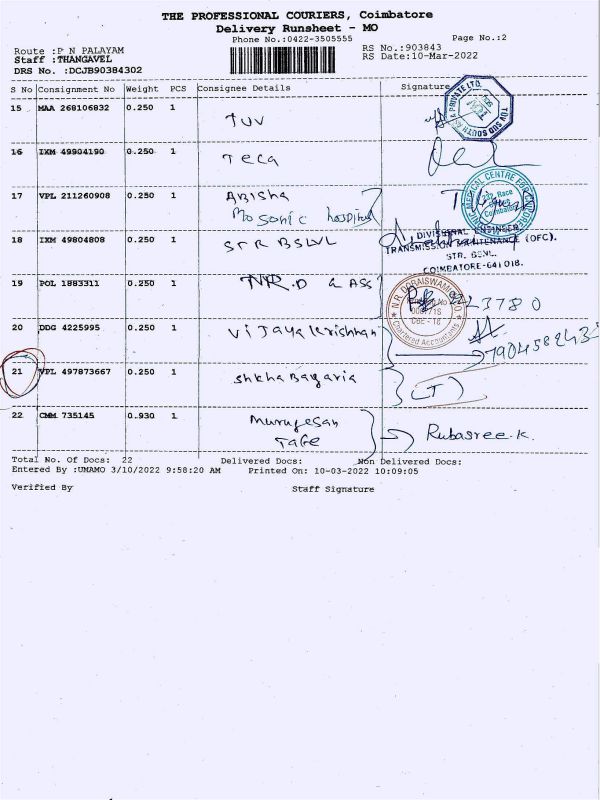 THE PROFESSIONAL COURIERS, Coimbatore
Delivery Runsheet - MO
Phone No.:0422-3505555
Page No.:2
Route :P N PALAYAM
RS No.:903843
Staff :THANGAVEL
RS Date:10-Mar-2022
DRS No. :DCJB90384302
S No Consignment No Weight PCS Consignee Details Signature
15 MAA 268106832 0.250 1 TUV
16 IXM 49904190 0.250 1 Teca
17 VPL 211260908 0.250 1 Abisha
Mosonic hospital
18 IXM 49804808 0.250 1 STR BSNL
DIVISIONAL ENGINEER
TRANSMISSION MAINTENANCE (OFC).
STR. BSNL.
COIMBATORE-641 018.
19 POL 1883311 0.250 1 N.R.D & ASS
N.R. DORAISWAMY & CO
Chartered Accountants
20 DDG 4225995 0.250 1 Vijayakrishnan
21 VPL 497873667 0.250 1 Shkha Bagaria
22 CMM 735145 0.930 1 Murugesan
Tafe
Rubasree.K.
Total No. Of Docs: 22 Delivered Docs: Non Delivered Docs:
Entered By :UMAMO 3/10/2022 9:58:20 AM Printed On: 10-03-2022 10:09:05
Verified By Staff Signature